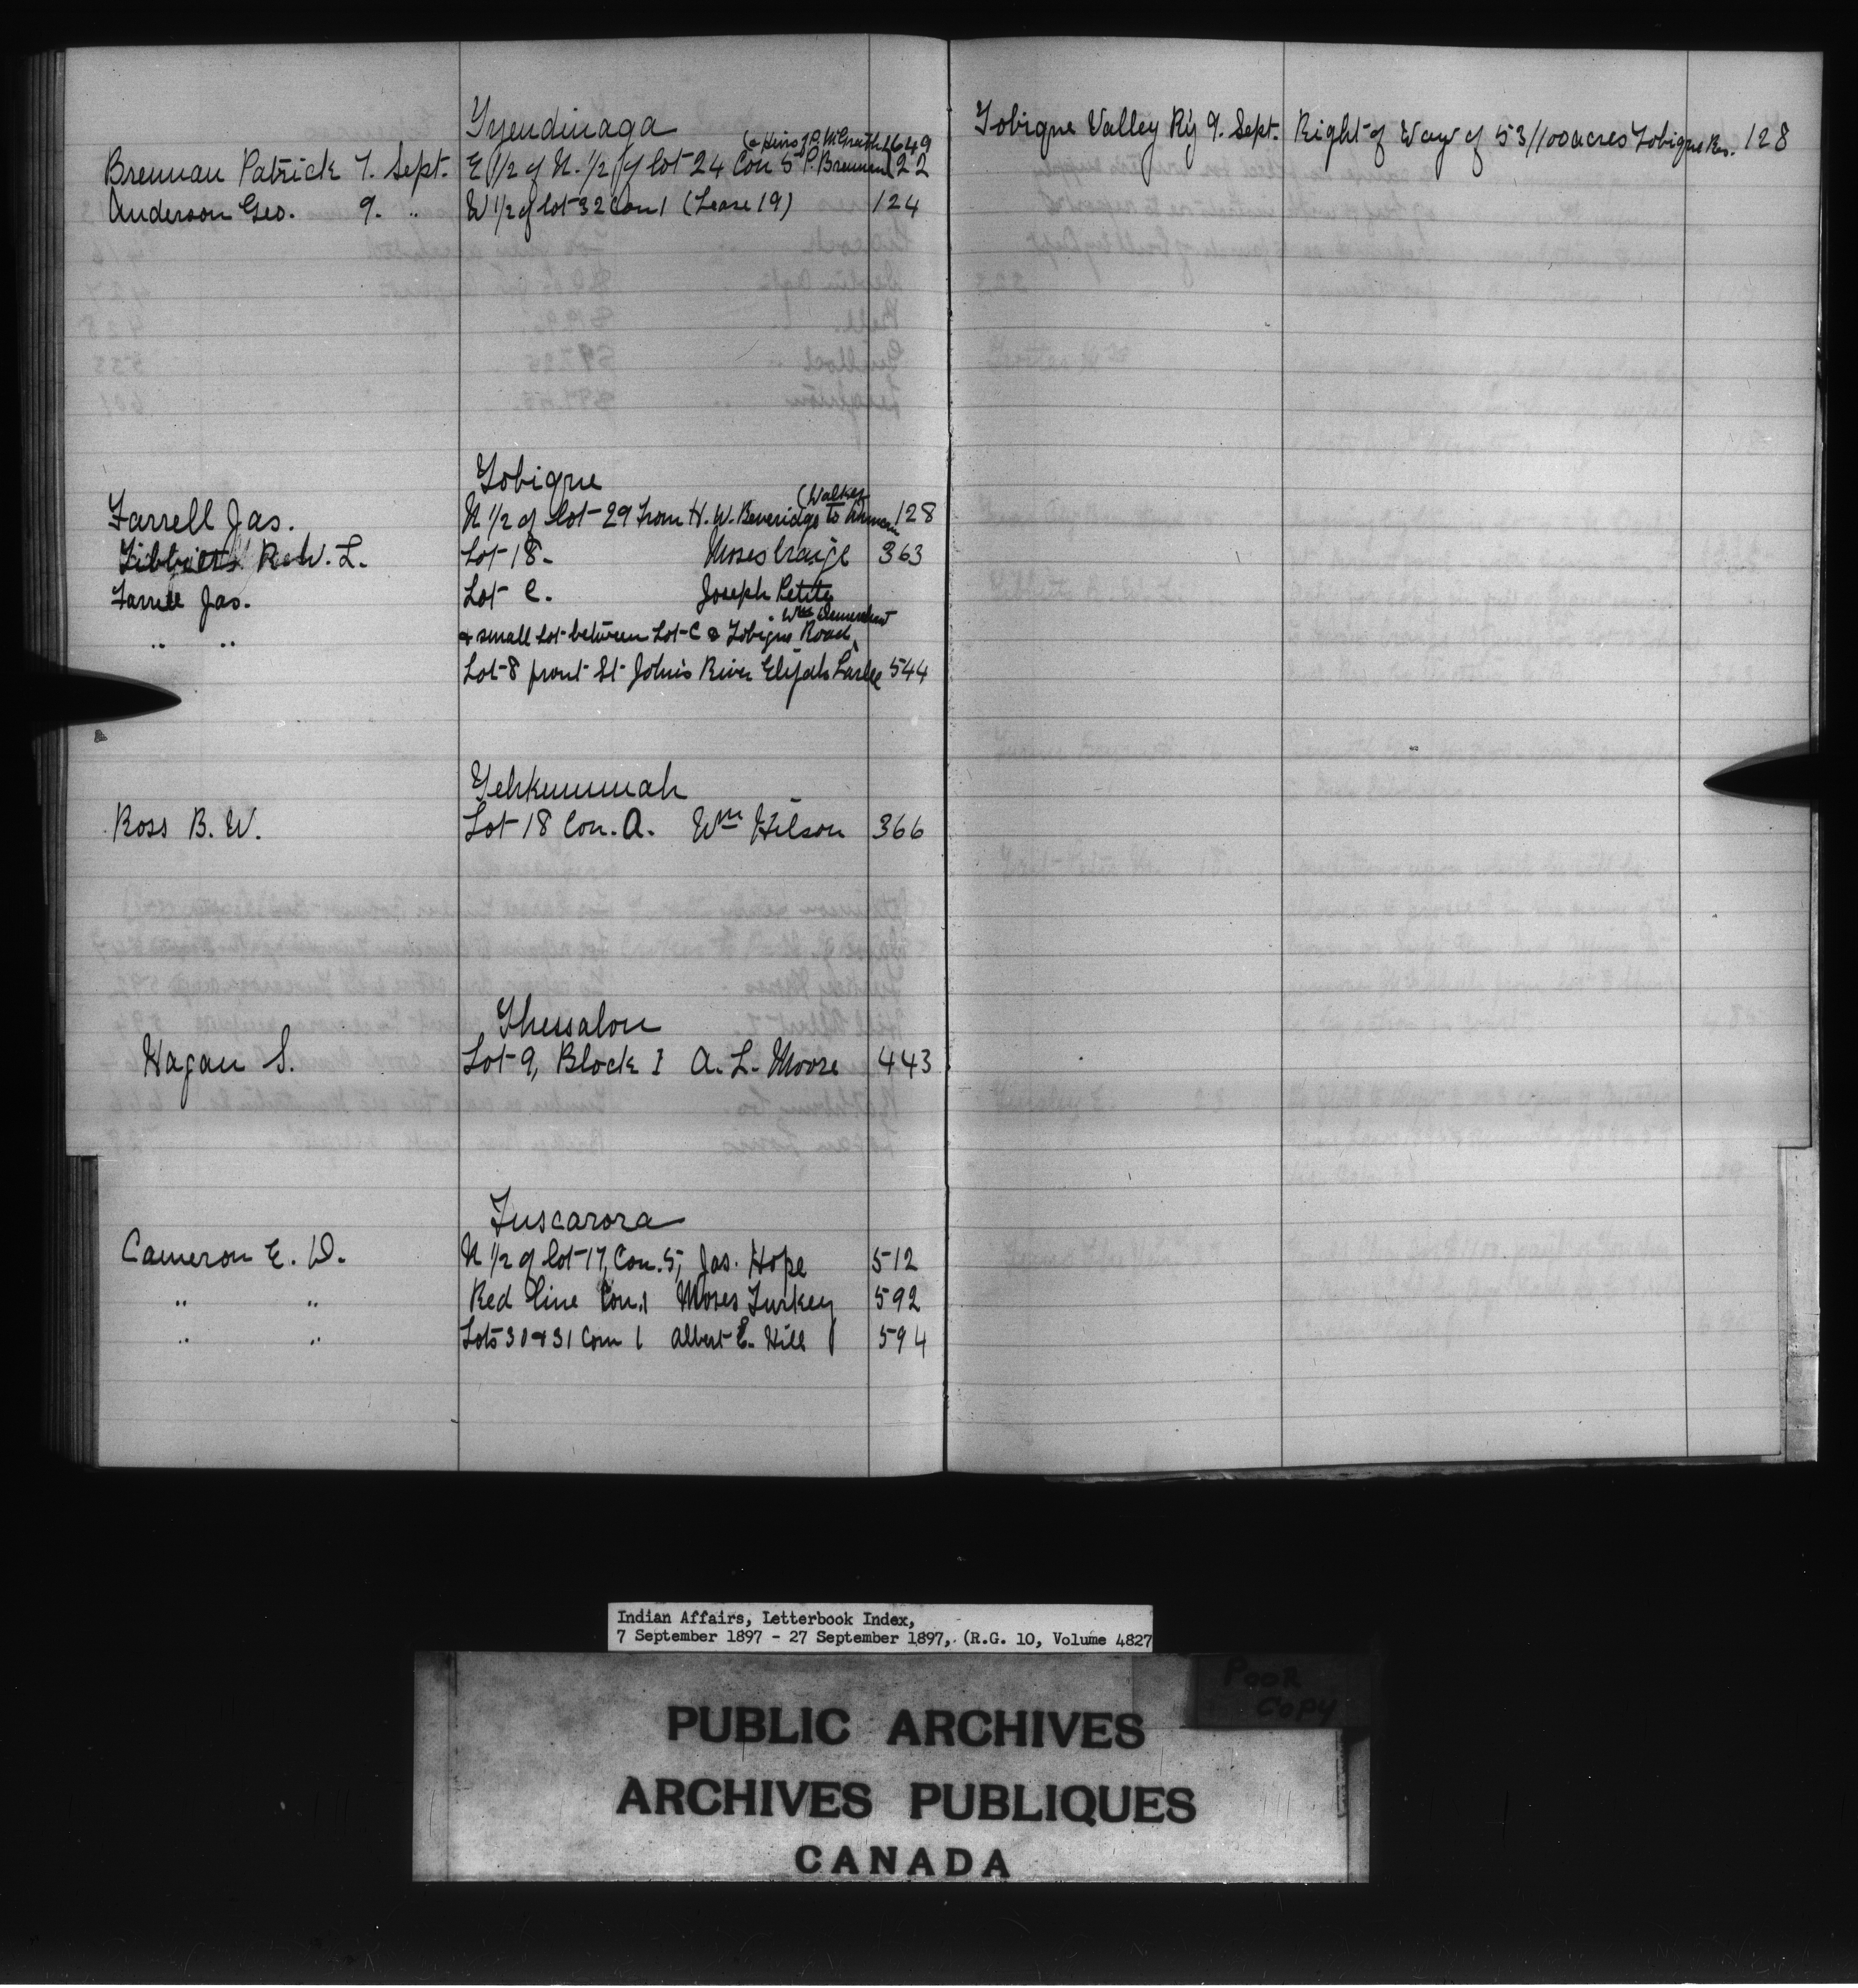 Tyendinaga
(& Heirs J.P. McGrath 1649
Brennan Patrick 7. Sept. E 1/2 of N. 1/2 of lot 24 Con 5 P. Brennan 22
Anderson Geo. 9. " W 1/2 of lot 32 Con 1 (Lease 19) 124
Tobique
(Walker
Farrell Jas. N 1/2 of lot 29 from H. W. Beveridge to 128
Tibbits L. Lot 18. Moses Craig 363
Farrell Jas. Lot C. Joseph Petite
" Wm
" " & small Lot between Lot C & Tobique Road,
Lot 8 front St Johns River Elijah Larlee 544
Tehkummah
Ross B. W. Lot 18 Con. A. Wm Hilson 366
Thessalon
Hagan S. Lot 9, Block I A. L. Moore 443
Tuscarora
Cameron E. D. N 1/2 of lot 17, Con. 5, Jas. Hope 512
" " Red line Con. 1 Moses Turkey 592
" " Lots 30 & 31 Con 1 Albert E. Hill 594
Tobique Valley Ry 9. Sept. Right of Way of 53/100 acres Tobique Res. 128
Indian Affairs, Letterbook Index,
7 September 1897 - 27 September 1897, (R.G. 10, Volume 4827
POOR
COPY
PUBLIC ARCHIVES
ARCHIVES PUBLIQUES
CANADA